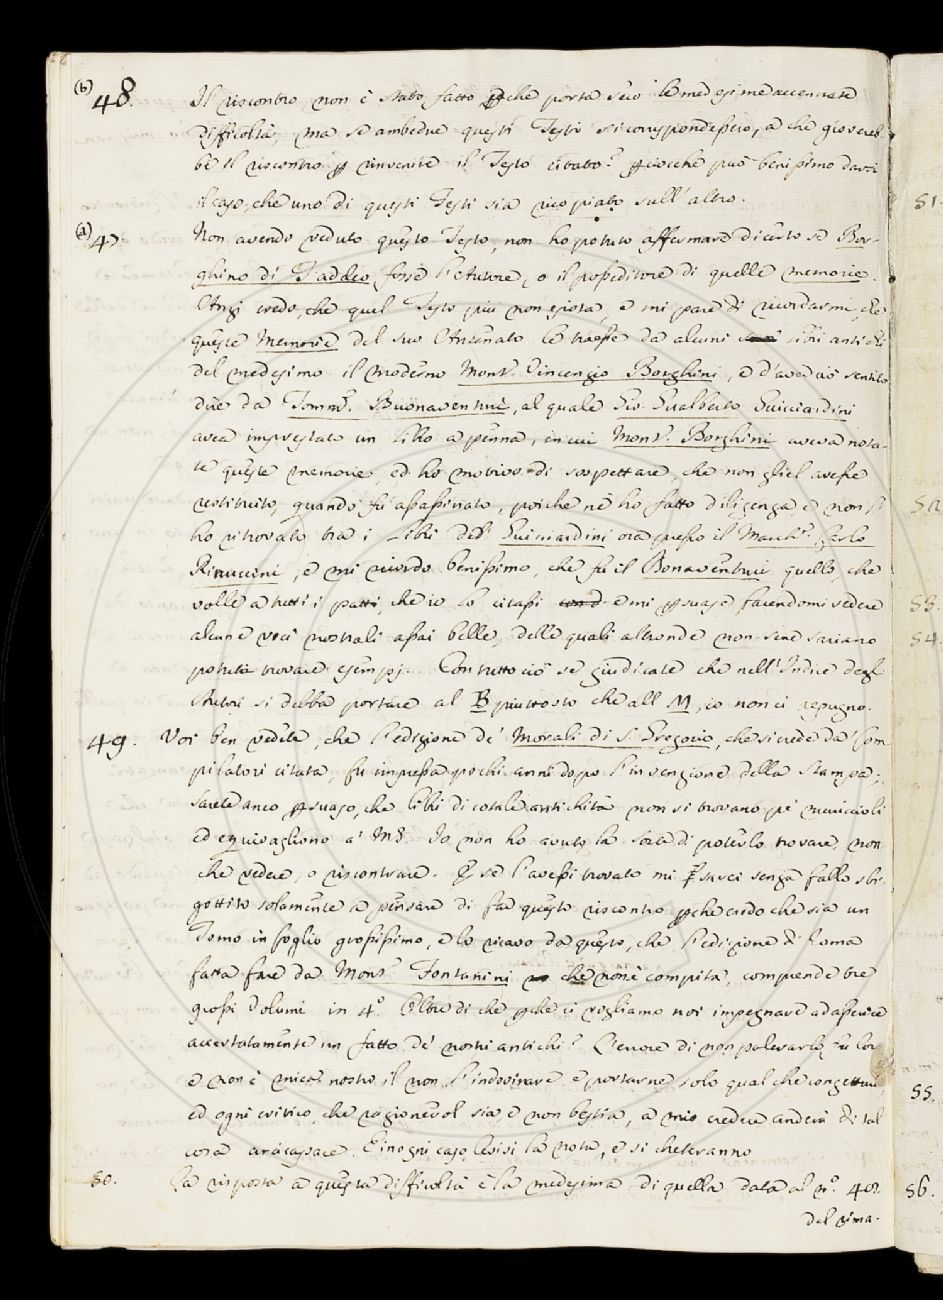 (b) 48. Il riscontro non è stato fatto pche porta seco le medesime accennate
difficoltà, ma se ambedue questi Testi si corrispondessero, a che giovereb-
be il riscontro p rinvenire il Testo citato? pciocchè può benissimo darsi
il caso, che uno di questi Testi sia ricopiato sull'altro.
(a) 47. Non avendo veduto questo Testo, non ho potuto affermare di certo se Bor-
ghino di Taddeo fosse l'Autore, o il possditore di quelle memorie.
Anzi credo, che quel Testo più non esista, e mi pare di ricordarmi, che
queste Memorie del suo Antenato le traesse da alcuni libri antichi
del medesimo il moderno Mons.r Vincenzio Borghini, e d'aver ciò sentito
dire da Tomm.o Buonaventuri, al quale Gio. Gualberto Guicciardini
avea imprestato un libro a penna, in cui Mons.r Borghini aveva nota-
te queste memorie, ed ho motivo di sospettare, che non gliel avesse
restituito, quando fu assassinato, poichè nè ho fatto diligenza, e non l'
ho ritrovato tra i Libri del Guicciardini ora presso il March.e Carlo
Rinuccini, e mi ricordo benissimo, che fu il Bonaventuri quello, che
volle a tutti i patti, che io lo citassi e mi psuase facendomi vedere
alcune voci nostrali assai belle, delle quali altronde non sene sariano
potuti trovare esempj. Con tutto ciò se giudicate che nell'Indice degl'
Autori si debba portare al B piuttosto che all M, io non ci repugno.
49. Voi ben vedete, che l'edizione de' Morali di S. Gregorio, che si crede da' Com-
pilatori citata, fu impressa pochi anni dopo l'invenzione della stampa;
sarete anco psuaso, che libri di cotale antichità non si trovano pe' muriccioli
ed equivagliono a' MS. Io non ho avuto la sorte di poterlo trovare, non
che vedere, o riscontrare. E se l'avessi trovato mi sarei senza fallo sbi-
gottito solamente a pensare di far questo riscontro pche credo che sia un
Tomo in foglio grossissimo, e lo ricavo da questo, che l'edizione di Roma
fatta fare da Mons.r Fontanini che non è compita, comprende tre
grossi Volumi in 4.o Oltre di che pche ci vogliamo noi impegnare ad asserire
accertatamente un fatto de' nostri antichi? L'errore di non palesarlo fu loro
e non è mica nostro il non l'indovinare, e portarne solo qualche congettura,
ed ogni critico, che ragionevol sia e non bestia, a mio credere anderà di tal
cosa capace. E in ogni caso levisi la nota, e si cheteranno
50. La risposta a questa difficoltà è la medesima di quella data al n.o 40.
del rima-
51.
52
53.
54.
55.
56.